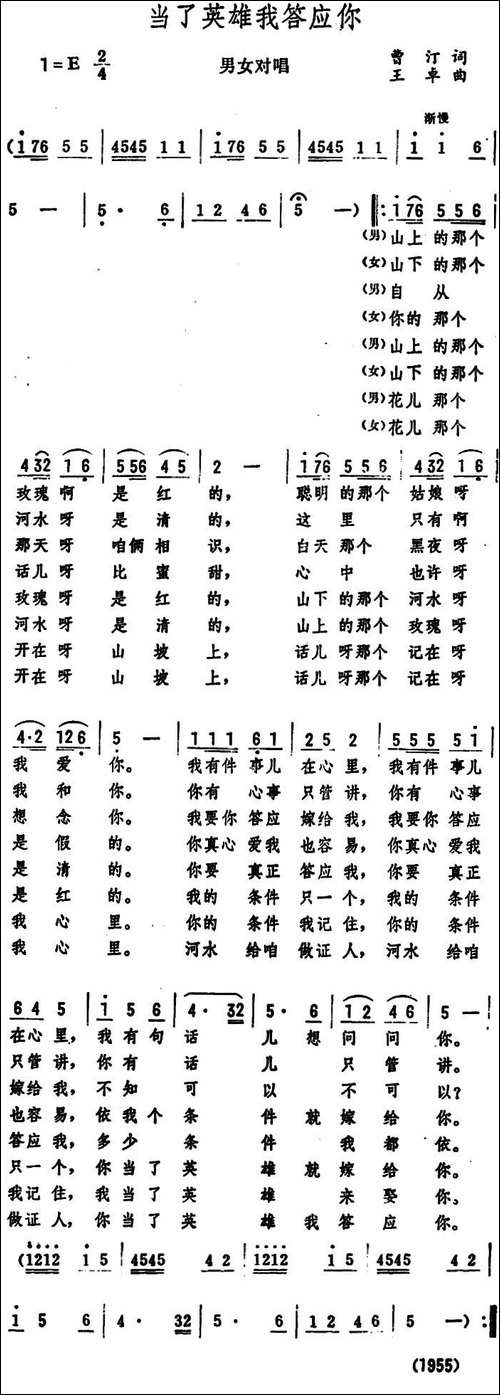 当了英雄我答应你
1=E 2/4 男女对唱 曹汀词
王卓曲
渐慢
(176 55 | 4545 11 | 176 55 | 4545 11 | 1 1 6 |
5 — | 5· 6 | 12 46 | 5 —) ‖: 176 556 |
(男)山上的那个
(女)山下的那个
(男)自从
(女)你的那个
(男)山上的那个
(女)山下的那个
(男)花儿那个
(女)花儿那个
432 16 | 556 45 | 2 — | 176 556 | 432 16 |
玫瑰啊 是红的, 聪明的那个 姑娘呀
河水呀 是清的, 这里 只有啊
那天呀 咱俩相识, 白天那个 黑夜呀
话儿呀 比蜜甜, 心中 也许呀
玫瑰呀 是红的, 山下的那个 河水呀
河水呀 是清的, 山上的那个 玫瑰呀
开在呀 山坡上, 话儿呀那个 记在呀
开在呀 山坡上, 话儿呀那个 记在呀
4·2 126 | 5 — | 111 61 | 25 2 | 555 51 |
我爱你。 我有件事儿 在心里, 我有件事儿
我和你。 你有心事 只管讲, 你有心事
想念你。 我要你答应 嫁给我, 我要你答应
是假的。 你真心爱我 也容易, 你真心爱我
是清的。 你要真正 答应我, 你要真正
是红的。 我的条件 只一个, 我的条件
我心里。 你的条件 我记住, 你的条件
我心里。 河水给咱 做证人, 河水给咱
64 5 | 15 6 | 4· 32 | 5· 6 | 12 46 | 5 — |
在心里, 我有句话儿想问问你。
只管讲, 你有话儿只管讲。
嫁给我, 不知可以不可以?
也容易, 依我个条件就嫁给你。
答应我, 多少条件我都依。
只一个, 你当了英雄就嫁给你。
我记住, 我当了英雄来娶你、
做证人, 你当了英雄我答应你。
(1212 15 | 4545 42 | 1212 15 | 4545 42 |
15 6 | 4· 32 | 5 6 | 12 46 | 5 —) :‖
(1955)